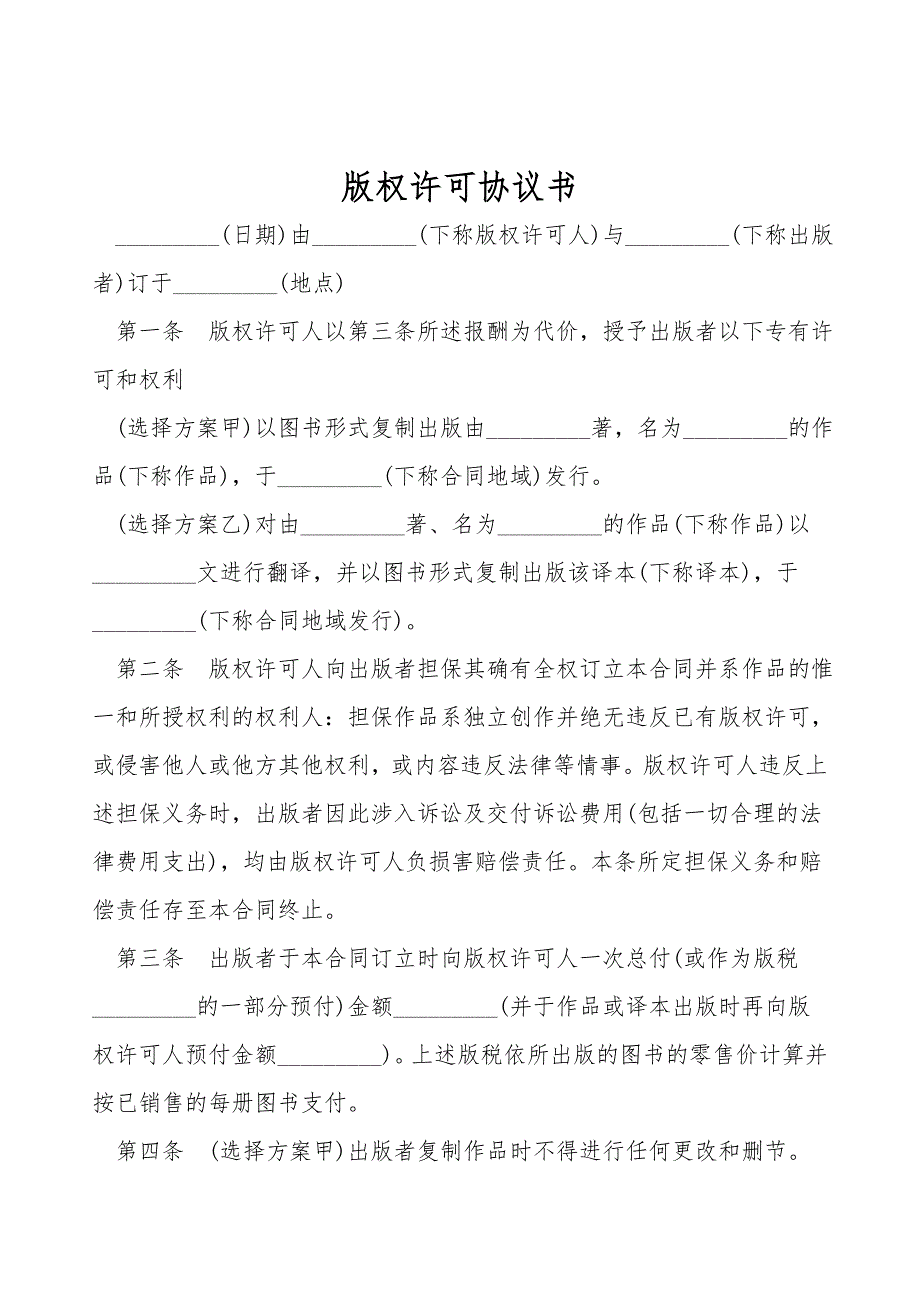 版权许可协议书
_________(日期)由_________(下称版权许可人)与_________(下称出版
者)订于_________(地点)
第一条　版权许可人以第三条所述报酬为代价，授予出版者以下专有许
可和权利
(选择方案甲)以图书形式复制出版由_________著，名为_________的作
品(下称作品)，于_________(下称合同地域)发行。
(选择方案乙)对由_________著、名为_________的作品(下称作品)以
_________文进行翻译，并以图书形式复制出版该译本(下称译本)，于
_________(下称合同地域发行)。
第二条　版权许可人向出版者担保其确有全权订立本合同并系作品的惟
一和所授权利的权利人：担保作品系独立创作并绝无违反已有版权许可，
或侵害他人或他方其他权利，或内容违反法律等情事。版权许可人违反上
述担保义务时，出版者因此涉入诉讼及交付诉讼费用(包括一切合理的法
律费用支出)，均由版权许可人负损害赔偿责任。本条所定担保义务和赔
偿责任存至本合同终止。
第三条　出版者于本合同订立时向版权许可人一次总付(或作为版税
_________的一部分预付)金额_________(并于作品或译本出版时再向版
权许可人预付金额_________)。上述版税依所出版的图书的零售价计算并
按已销售的每册图书支付。
第四条　(选择方案甲)出版者复制作品时不得进行任何更改和删节。